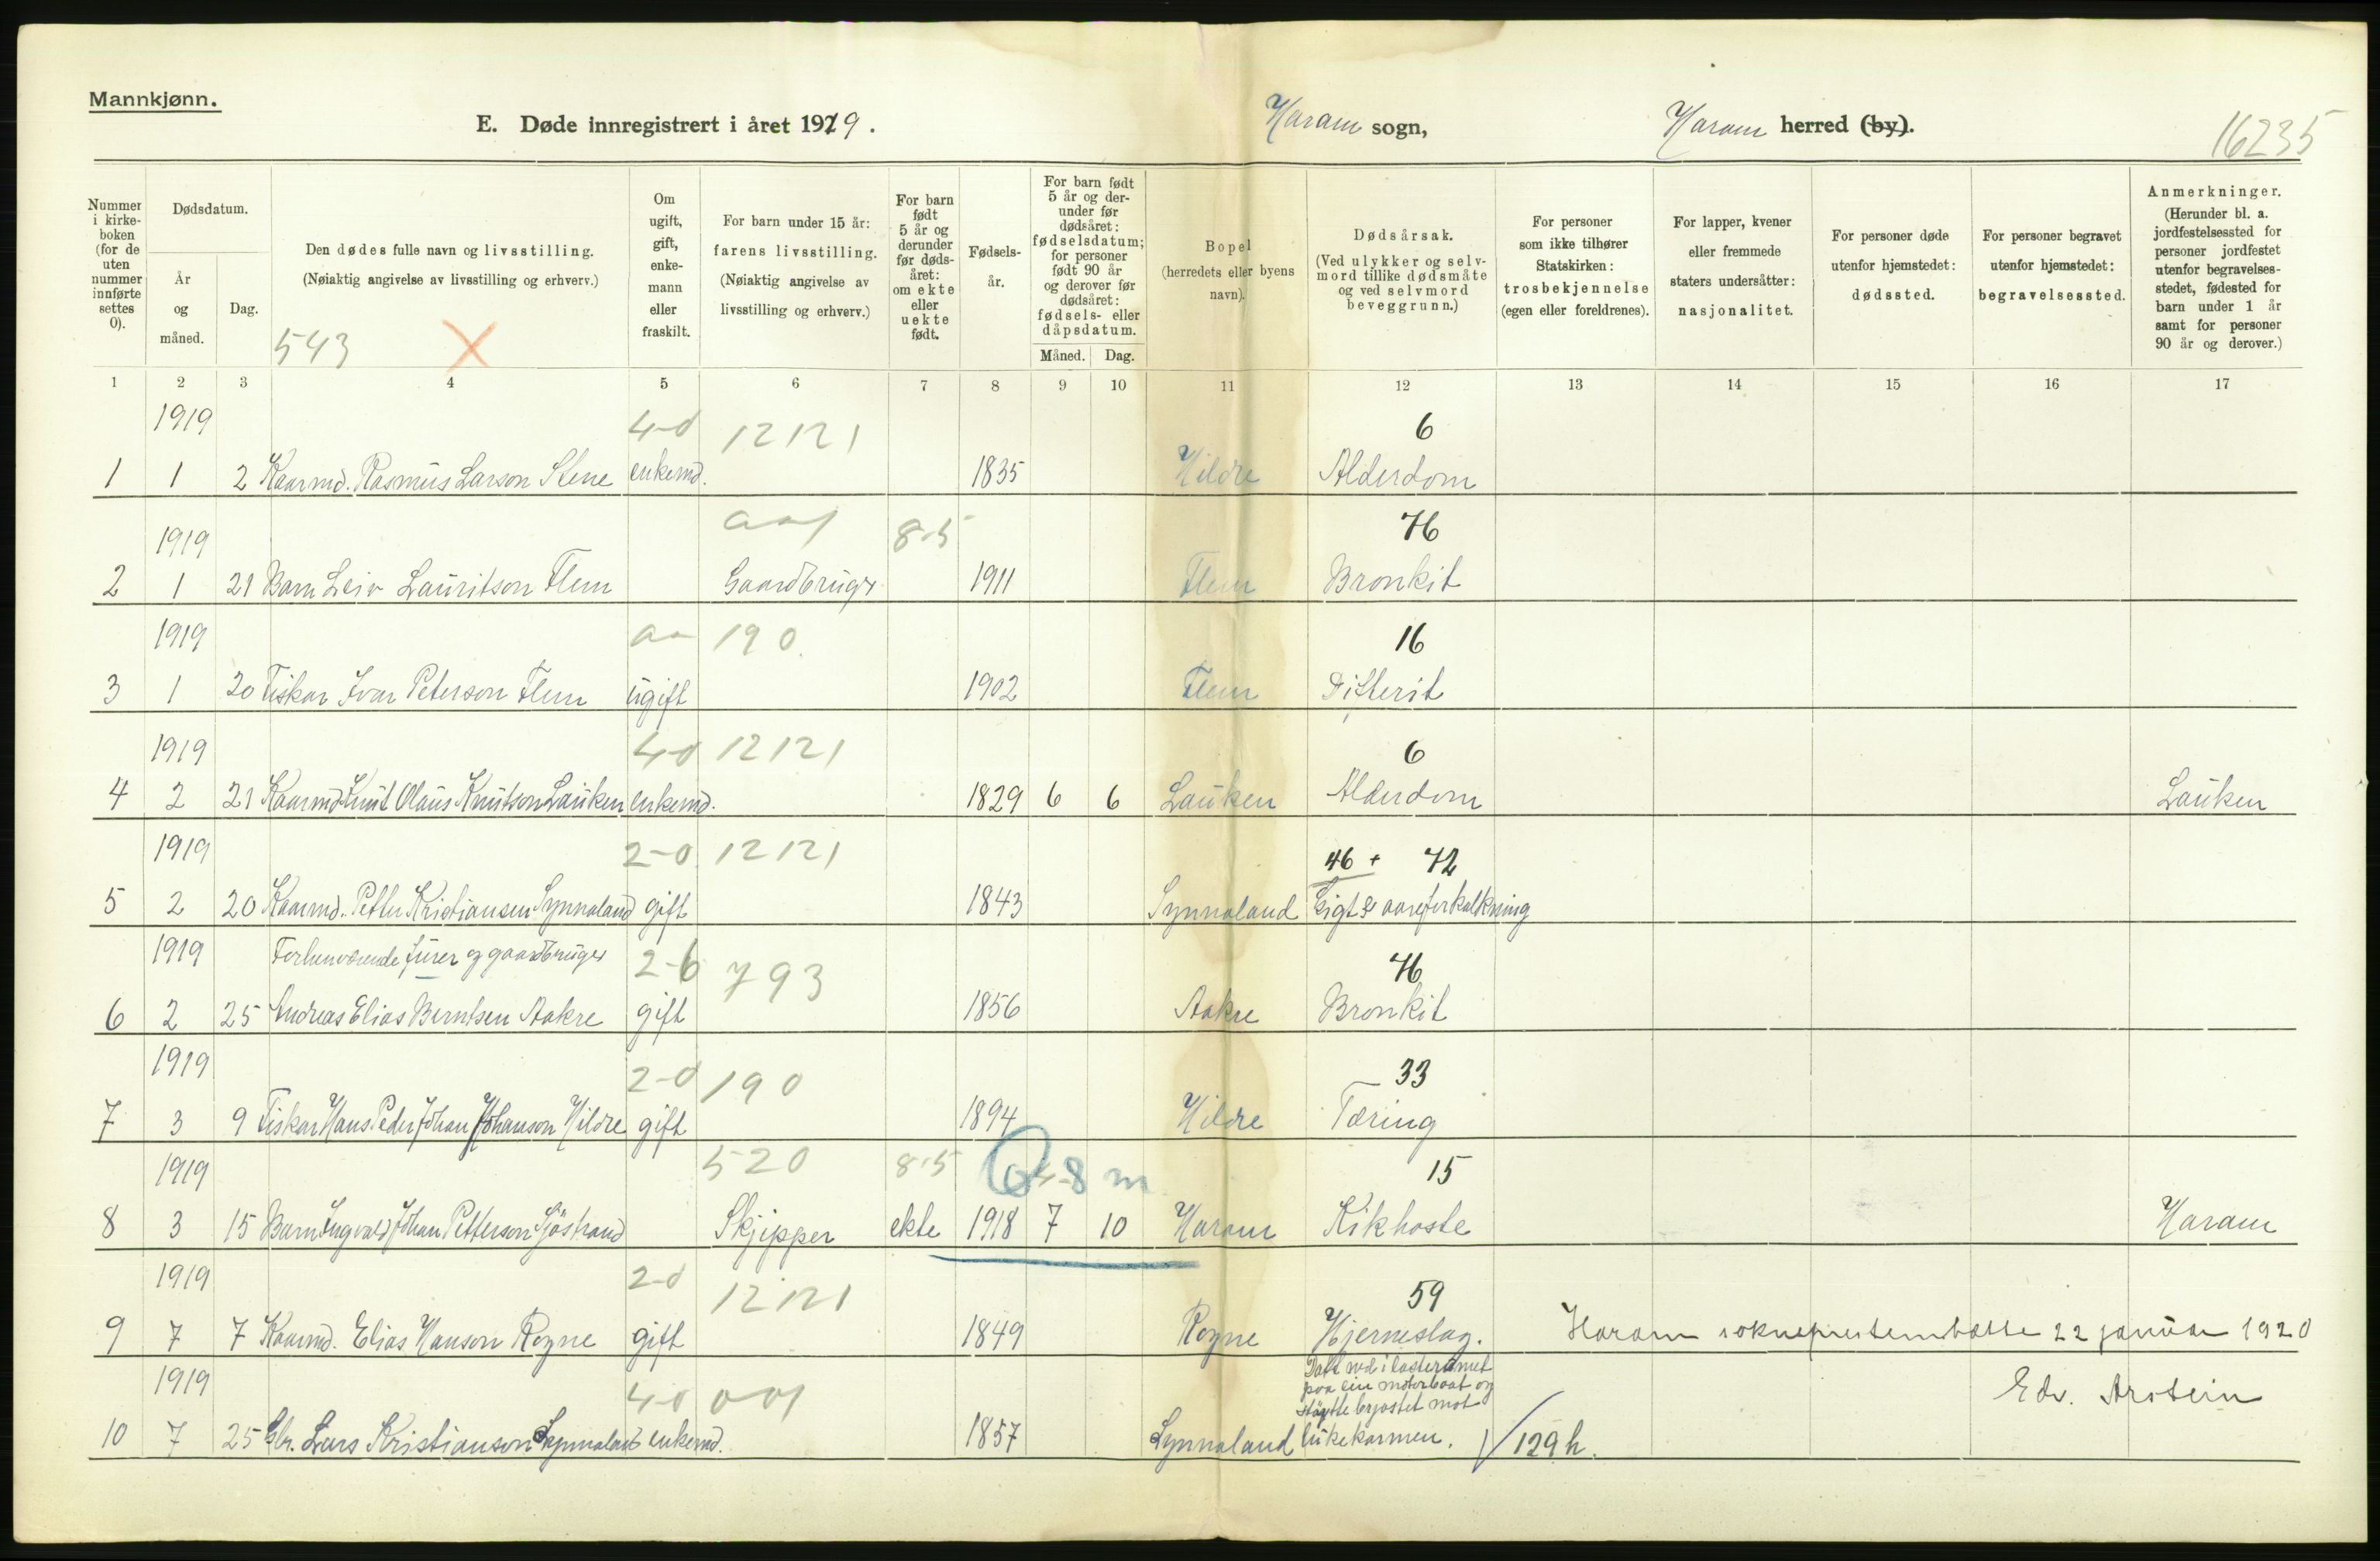 Mannkjønn.
E. Døde innregistrert i året 1919.
Haram sogn,
Haram herred (by).
16235
Nummer i kirkeboken (for de uten nummer innførte settes 0).
Dødsdatum.
År og måned.
Dag.
Den dødes fulle navn og livsstilling.
(Nøiaktig angivelse av livsstilling og erhverv.)
543
Om ugift, gift, enkemann eller fraskilt.
For barn under 15 år: farens livsstilling.
(Nøiaktig angivelse av livsstilling og erhverv.)
For barn født 5 år og derunder før dødsåret: om ekte eller uekte født.
Fødselsår.
For barn født 5 år og derunder før dødsåret: fødselsdatum; for personer født 90 år og derover før dødsåret: fødsels- eller dåpsdatum.
Måned. Dag.
Bopel (herredets eller byens navn).
Dødsårsak.
(Ved ulykker og selvmord tillike dødsmåte og ved selvmord beveggrunn.)
For personer som ikke tilhører Statskirken: trosbekjennelse (egen eller foreldrenes).
For lapper, kvener eller fremmede staters undersåtter: nasjonalitet.
For personer døde utenfor hjemstedet: dødssted.
For personer begravet utenfor hjemstedet: begravelsessted.
Anmerkninger.
(Herunder bl. a. jordfestelsessted for personer jordfestet utenfor begravelsesstedet, fødested for barn under 1 år samt for personer 90 år og derover.)
1 2 3 4 5 6 7 8 9 10 11 12 13 14 15 16 17
1919 4-0 12121 6
1 1 2 Kaarmd. Rasmus Larson Stene enkemd. 1835 Hildre Alderdom
1919 8.5 76
2 1 21 Barn Leiv Lauritson Flem Gaardbruger 1911 Flem Bronkit
1919 190 16
3 1 20 Fiskar Ivar Peterson Flem ugift 1902 Flem Difterit
1919 4-0 12121 6
4 2 21 Kaarmd Knut Olaus Knutson Lauken enkemd. 1829 6 6 Lauken Alderdom Lauken
1919 2-0 12121 46 + 72
5 2 20 Kaarmd. Petter Kristiansen Synnaland gift 1843 Synnaland Gigt & aareforkalkning
1919 Forhenværende furer og gaardbruger 2-6 793 76
6 2 25 Andreas Elias Berntsen Aakre gift 1856 Aakre Bronkit
1919 2-0 190 33
7 3 9 Fiskar Hans Peder Johan Johanson Hildre gift 1894 Hildre Tæring
1919 520 8.5 8 m 15
8 3 15 Barn Ingvald Johan Petterson Sjöstrand Skjipper ekte 1918 7 10 Haram Kikhoste Haram
1919 2-0 12121 59
9 7 7 Kaarmd. Elias Hanson Rogne gift 1849 Rogne Hjerneslag. Haram sokneprestembætte 22 januar 1920
1919 4-0 Datt ned i lasterumet
paa ein motorbaat og Edv. Arstein
støytte brjostet mot
10 7 25 Gbr. Lars Kristianson Synnaland enkemd. 1857 Synnaland lukekarmen. 129 h.